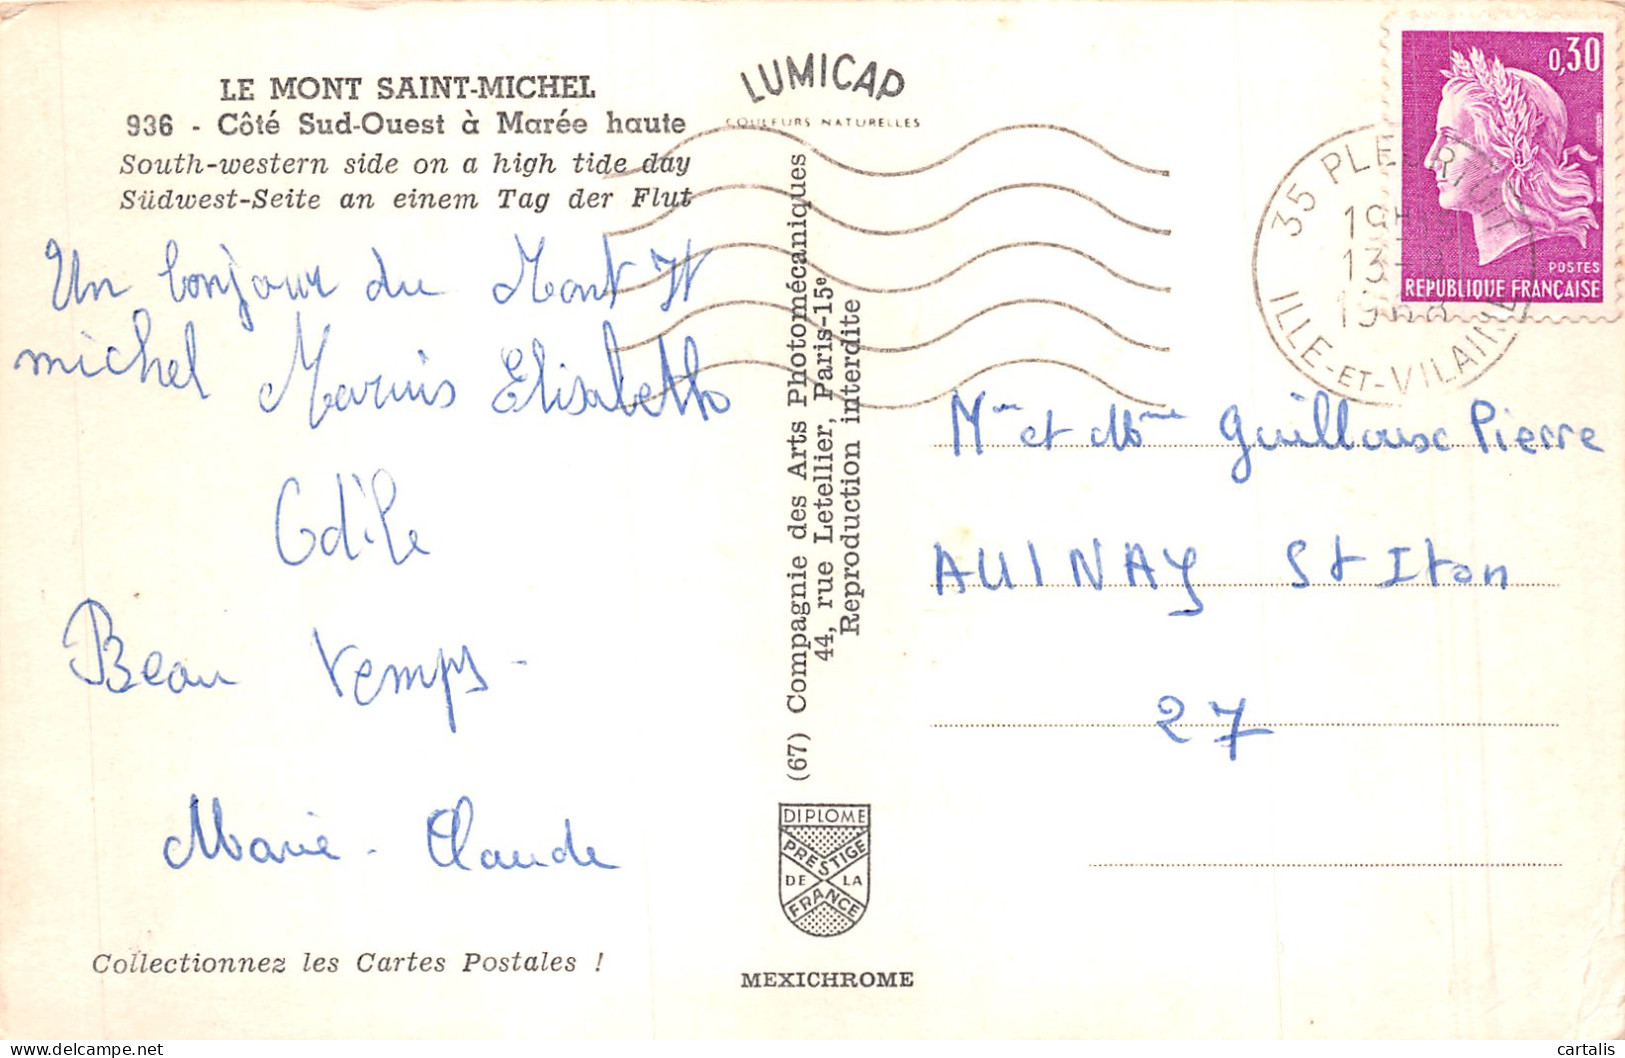 LE MONT SAINT-MICHEL
936 - Côté Sud-Ouest à Marée haute
South-western side on a high tide day
Südwest-Seite an einem Tag der Flut
Un bonjour du Mont St
michel Marius Elisabeth
Odile
Beau temps -
Marie - Claude
Collectionnez les Cartes Postales !
LUMICAP
COULEURS NATURELLES
(67) Compagnie des Arts Photomécaniques
44, rue Letellier, Paris-15e
Reproduction interdite
DIPLOME
PRESTIGE
DE LA
FRANCE
MEXICHROME
0,30
POSTES
REPUBLIQUE FRANÇAISE
35 PLEURTUIT
19H15
13-8
1968
ILLE-ET-VILAINE
Mr et Mme Guilloux Pierre
AUINAY St Iton
27
cartalis